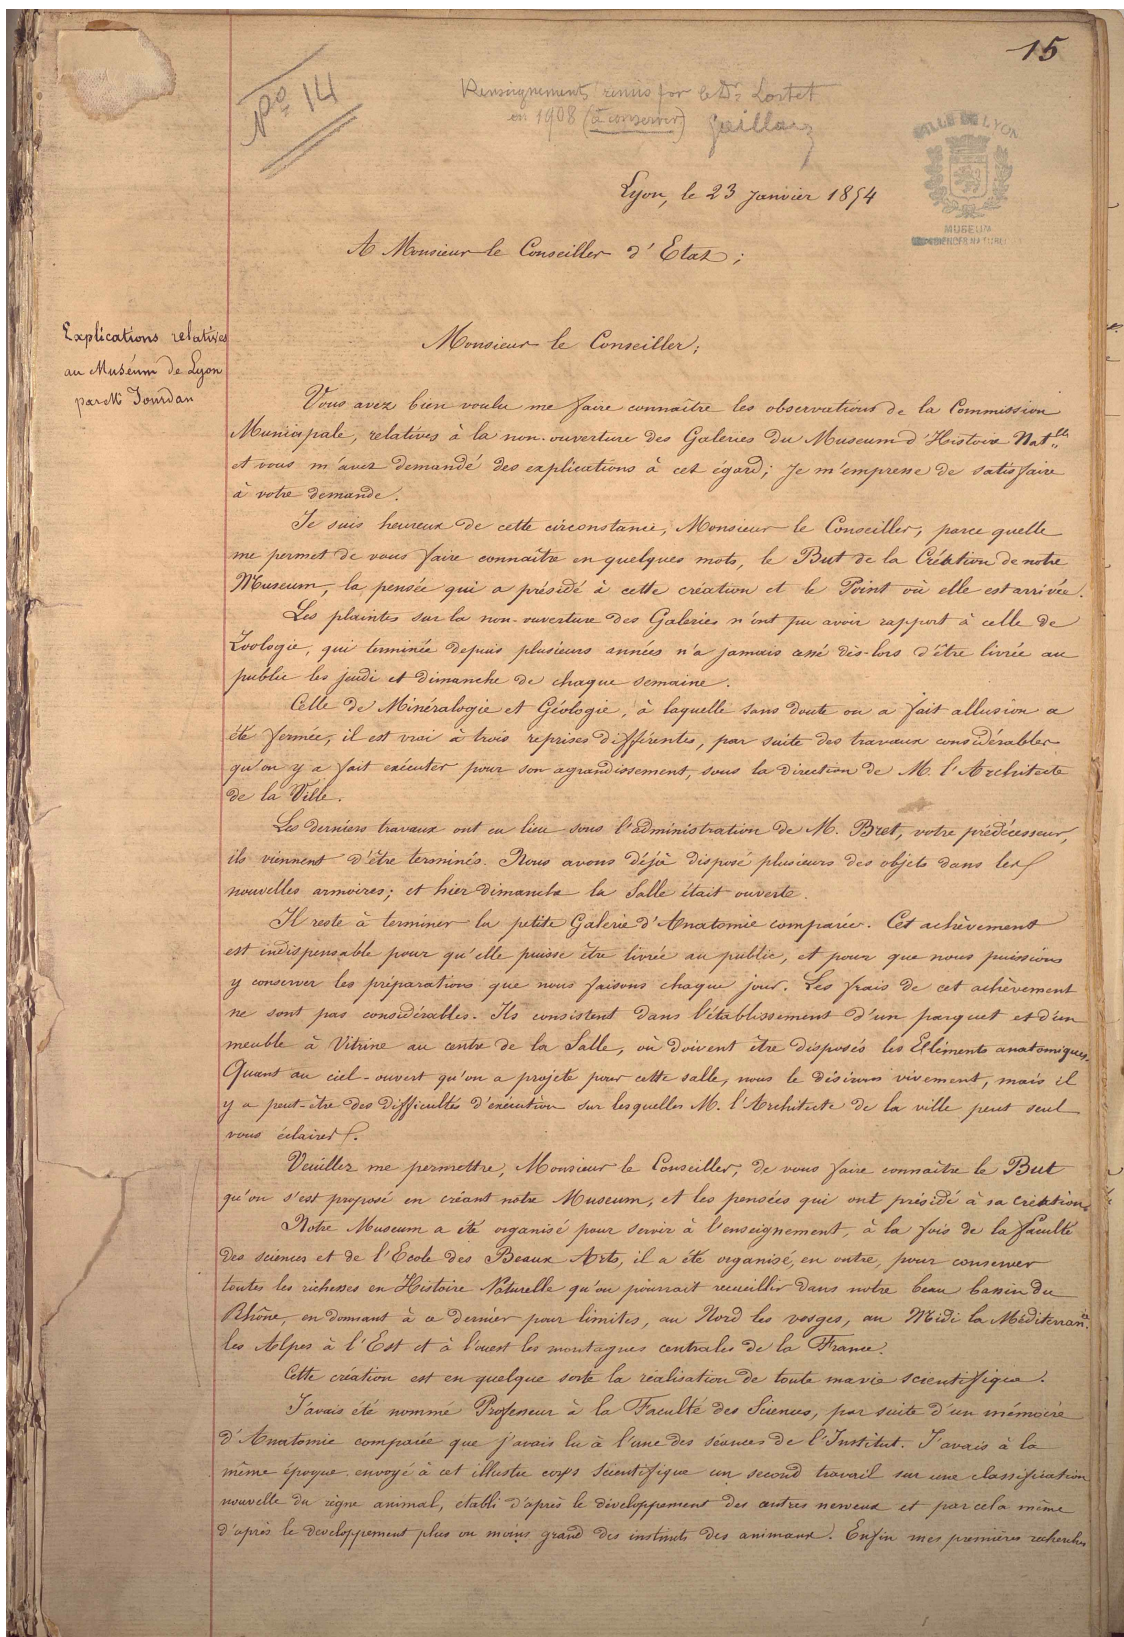 15
No 14
Renseignements remis par le Dr Lortet
en 1908 (à conserver) Gaillard
VILLE DE LYON
MUSEUM
SCIENCES NATUREL
Lyon, le 23 Janvier 1854
A Monsieur le Conseiller d'Etat;
Explications relatives
au Muséum de Lyon
par Mr Jourdan
Monsieur le Conseiller;
Vous avez bien voulu me faire connaître les observations de la Commission
Municipale, relatives à la non-ouverture des Galeries du Museum d'Histoire Natlle
et vous m'avez demandé des explications à cet égard; Je m'empresse de satisfaire
à votre demande.
Je suis heureux de cette circonstance, Monsieur le Conseiller, parce quelle
me permet de vous faire connaître en quelques mots, le But de la Création de notre
Museum, la pensée qui a présidé à cette création et le Point où elle est arrivée.
Les plaintes sur la non-ouverture des Galeries n'ont pu avoir rapport à celle de
Zoologie, qui terminée depuis plusieurs années n'a jamais cessé dès-lors d'être livrée au
public les jeudi et dimanche de chaque semaine.
Celle de Minéralogie et Géologie, à laquelle sans doute on a fait allusion a
été fermée, il est vrai à trois reprises différentes, par suite des travaux considérables
qu'on y a fait exécuter pour son agrandissement, sous la direction de M. l'Architecte
de la Ville.
Les derniers travaux ont eu lieu sous l'administration de M. Bret, votre prédécesseur,
ils viennent d'être terminés. Nous avons déjà disposé plusieurs des objets dans les
nouvelles armoires; et hier dimanche la Salle était ouverte.
Il reste à terminer la petite Galerie d'Anatomie comparée. Cet achèvement
est indispensable pour qu'elle puisse être livrée au public, et pour que nous puissions
y conserver les préparations que nous faisons chaque jour. Les frais de cet achèvement
ne sont pas considérables. Ils consistent dans l'établissement d'un parquet et d'un
meuble à Vitrine au centre de la Salle, où doivent être disposés les Eléments anatomiques.
Quant au ciel-ouvert qu'on a projeté pour cette salle, nous le désirons vivement, mais il
y a peut-être des difficultés d'exécution sur lesquelles M. l'Architecte de la ville peut seul
vous éclairer.
Veuillez me permettre, Monsieur le Conseiller, de vous faire connaître le But
qu'on s'est proposé en créant notre Museum, et les pensées qui ont présidé à sa création.
Notre Museum a été organisé pour servir à l'enseignement, à la fois de la faculté
des sciences et de l'Ecole des Beaux Arts, il a été organisé, en outre, pour conserver
toutes les richesses en Histoire Naturelle qu'on pourrait recueillir dans notre beau bassin du
Rhône, en donnant à ce dernier pour limites, au Nord les vosges, au Midi la Méditerranée.
les Alpes à l'Est et à l'ouest les montagnes centrales de la France.
Cette création est en quelque sorte la réalisation de toute ma vie scientifique.
J'avais été nommé Professeur à la Faculté des Sciences, par suite d'un mémoire
d'Anatomie comparée que j'avais lu à l'une des séances de l'Institut. J'avais à la
même époque envoyé à cet illustre corps Scientifique un second travail sur une classification
nouvelle du règne animal, établi d'après le développement des centres nerveux et par cela même
d'après le developpement plus ou moins grand des instincts des animaux. Enfin mes premières recherches